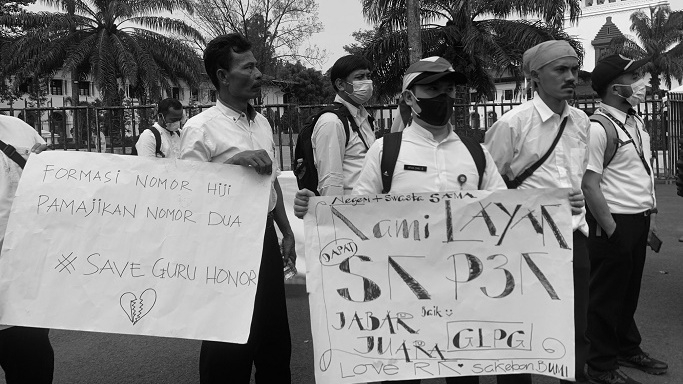 FORMASI NOMOR HIJI
PAMAJIKAN NOMOR DUA
# SAVE GURU HONOR
Negeri + Swasta SAMA
Kami LAYAK
DAPAT
SK P3K
JABAR baik
JUARA GLPG
LOVE RK sakebon BUMI